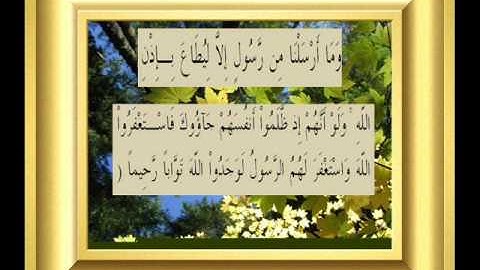 وَمَا أَرْسَلْنَا مِن رَّسُولٍ إِلاَّ لِيُطَاعَ بِـــإِذْنِ
اللّهِ وَلَوْ أَنَّهُمْ إِذ ظَّلَمُواْ أَنفُسَهُمْ جَآؤُوكَ فَاسْــتَغْفَرُواْ
اللّهَ وَاسْتَغْفَرَ لَهُمُ الرَّسُولُ لَوَجَدُواْ اللّهَ تَوَّاباً رَّحِيماً (